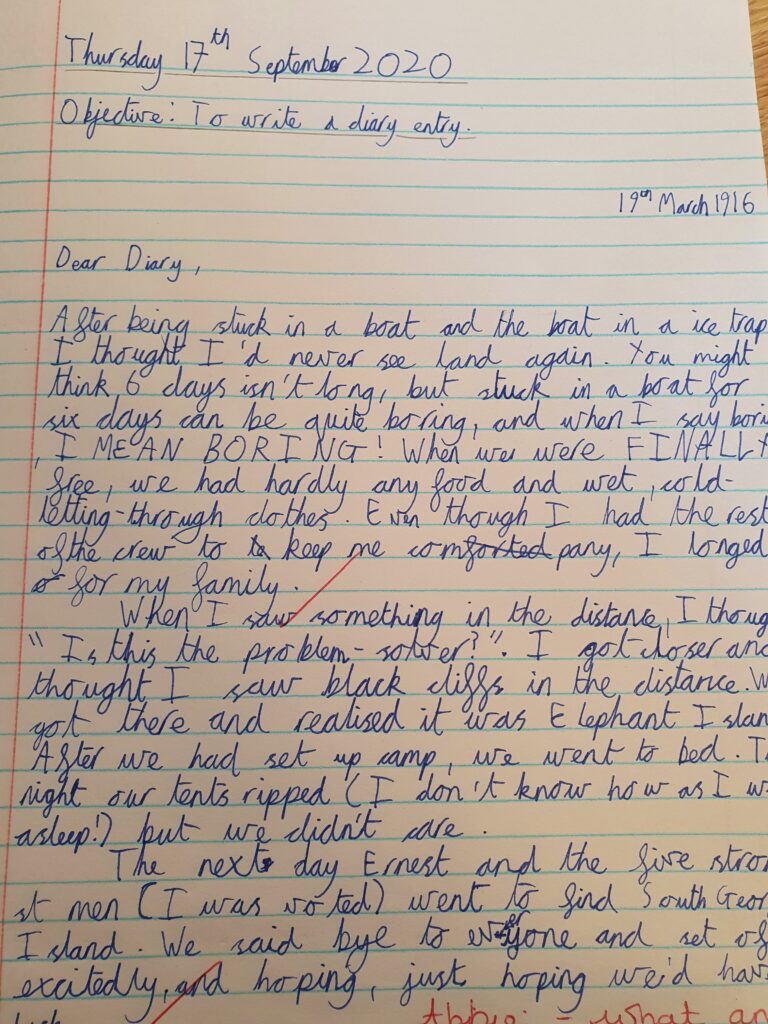 Thursday 17th September 2020
Objective: To write a diary entry.
19th March 1916
Dear Diary,
After being stuck in a boat and the boat in a ice trap
I thought I'd never see land again. You might
think 6 days isn't long, but stuck in a boat for
six days can be quite boring, and when I say bori
, I MEAN BORING! When wer were FINALLY
free, we had hardly any food and wet, cold-
letting-through clothes. Even though I had the rest
of the crew to keep me company, I longed
for my family.
When I saw something in the distance, I thoug
"Is this the problem-solver?". I got closer and
thought I saw black cliffs in the distance. W
got there and realised it was Elephant Islan
After we had set up camp, we went to bed. T
night our tents ripped (I don't know how as I w
asleep!) but we didn't care.
The next day Ernest and the five stron
st men (I was voted) went to find South Geor
Island. We said bye to everyone and set of
excitedly, and hoping, just hoping we'd hav
Abbie - what an